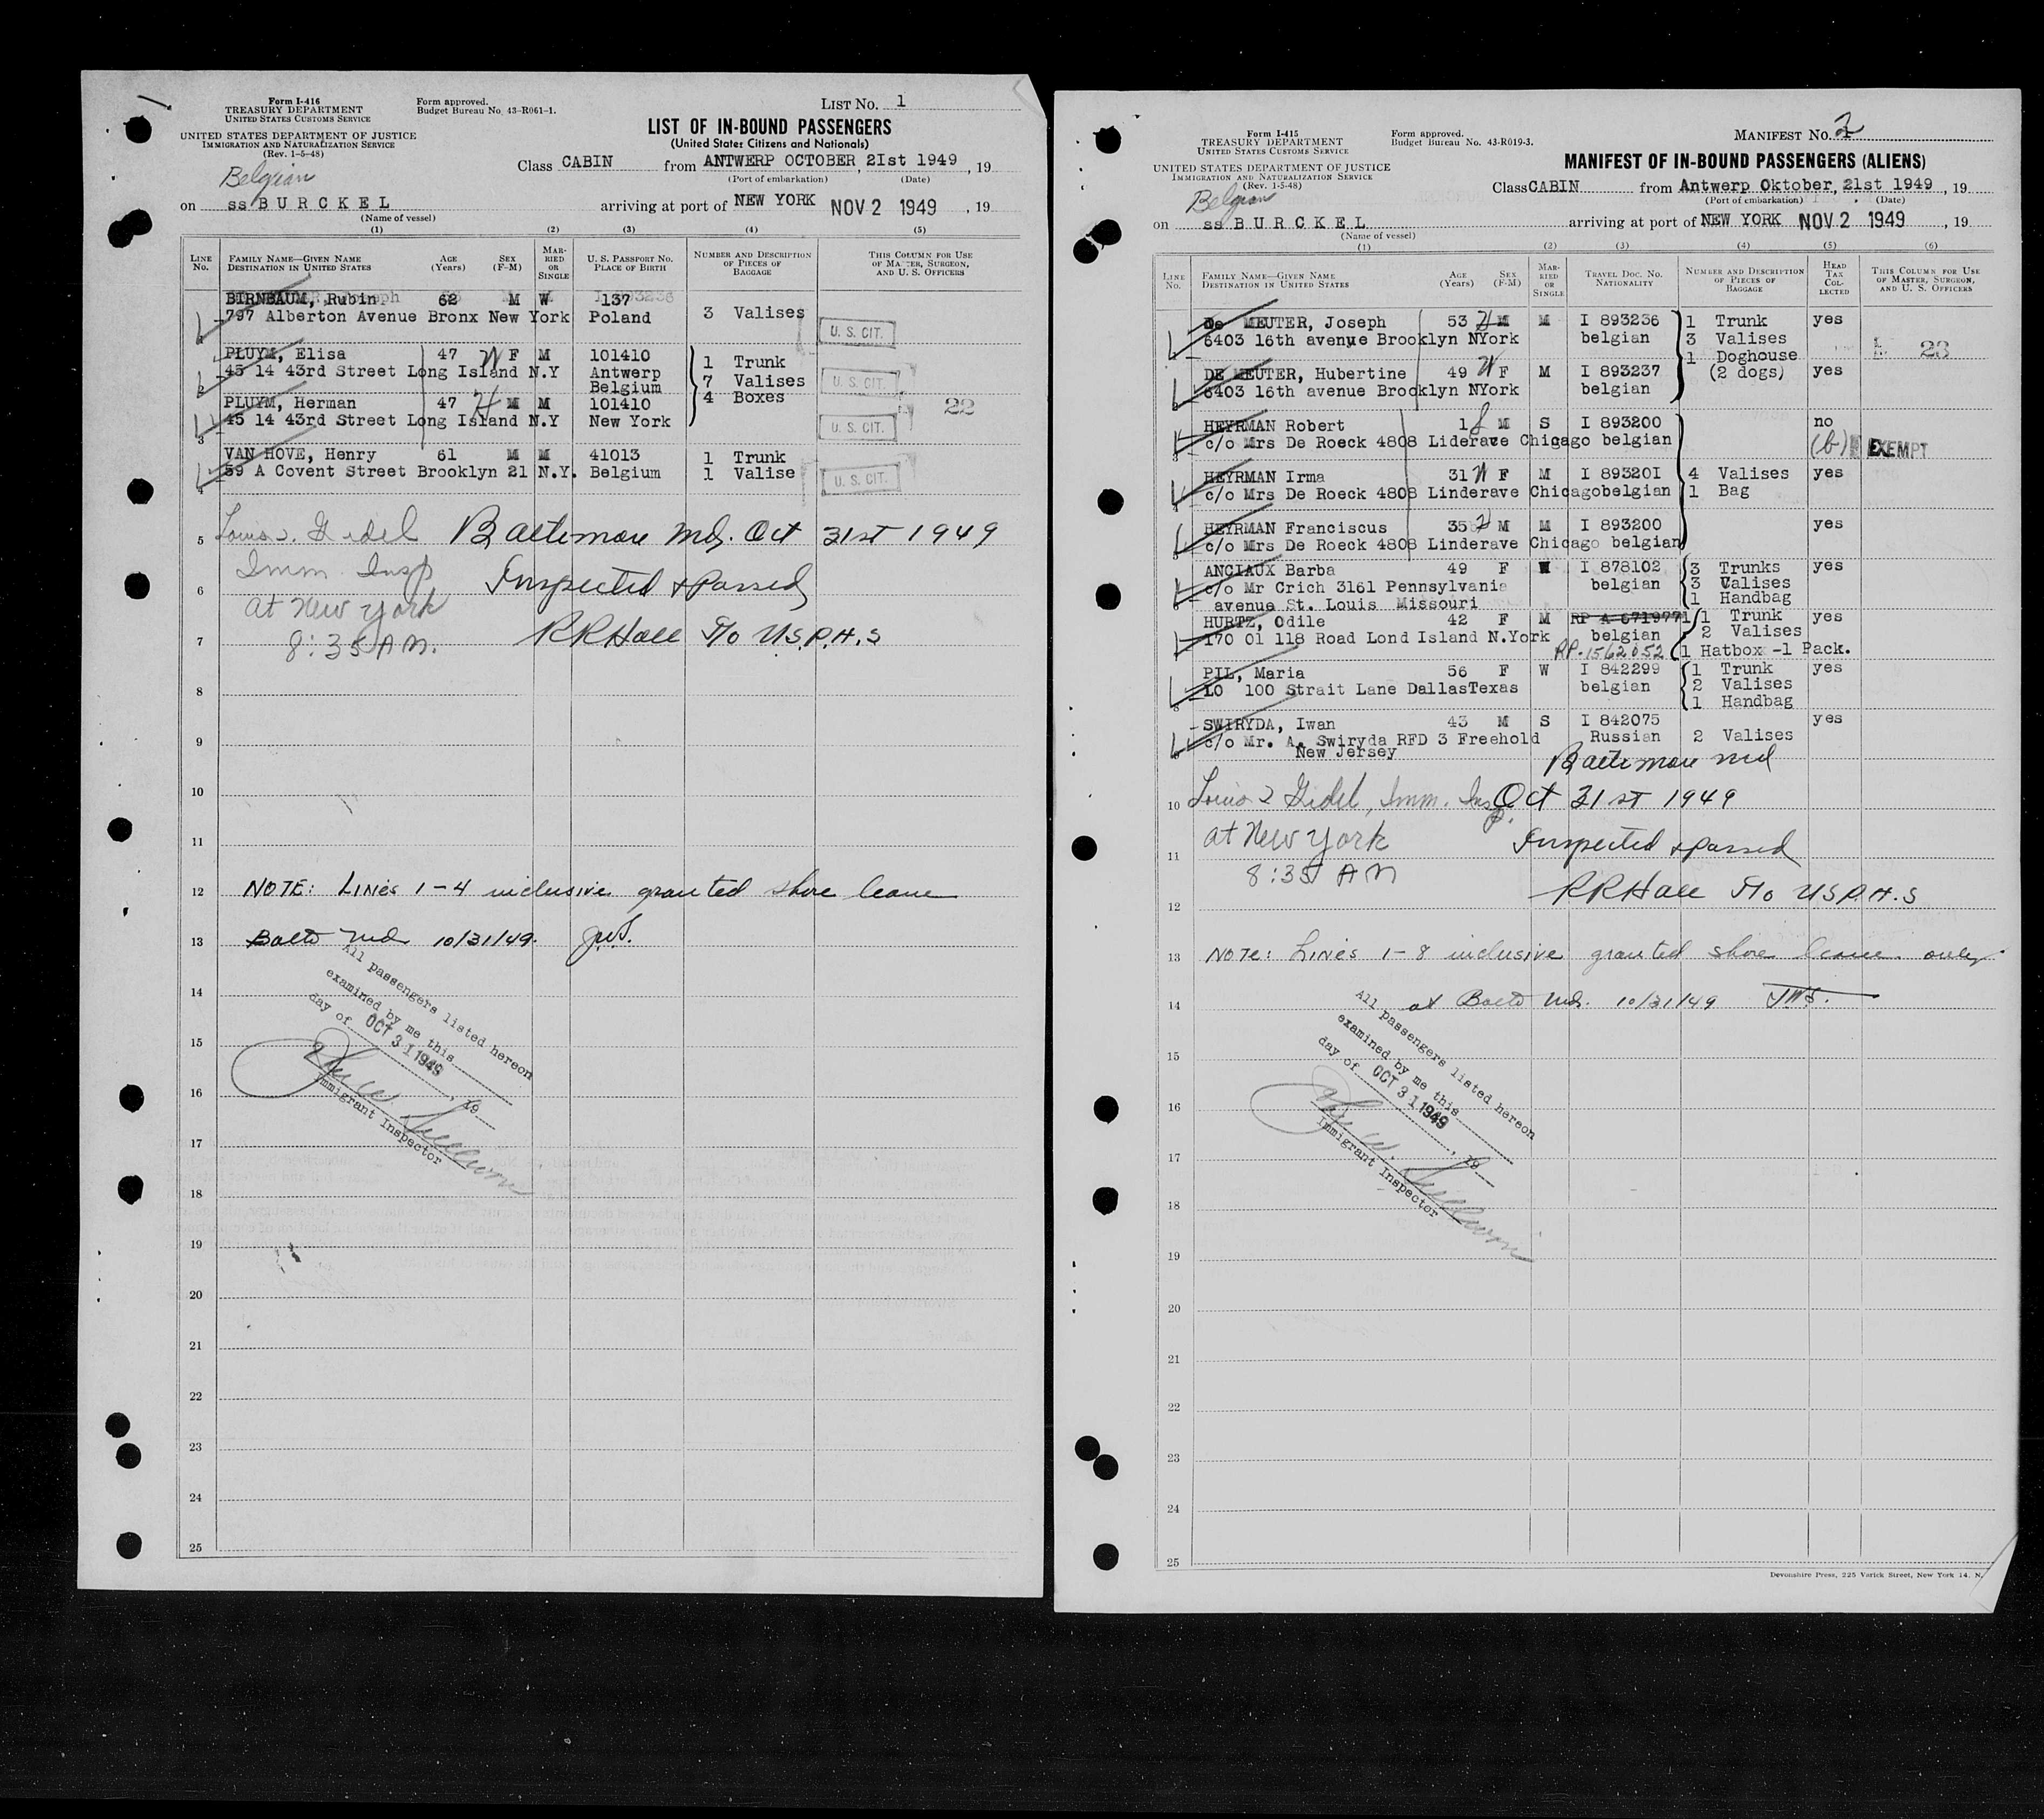 Form I-416
TREASURY DEPARTMENT
UNITED STATES CUSTOMS SERVICE
Form approved.
Budget Bureau No. 43-R061-1.
LIST No. 1
UNITED STATES DEPARTMENT OF JUSTICE
IMMIGRATION AND NATURALIZATION SERVICE
(Rev. 1-5-48)
LIST OF IN-BOUND PASSENGERS
(United States Citizens and Nationals)
Class CABIN from ANTWERP OCTOBER 21st 1949, 19
(Port of embarkation) (Date)
Belgian
on ss BURCKEL arriving at port of NEW YORK NOV 2 1949, 19
(Name of vessel)
(1) (2) (3) (4) (5)
LINE No. FAMILY NAME—GIVEN NAME DESTINATION IN UNITED STATES AGE (Years) SEX (F-M) MARRIED OR SINGLE U. S. PASSPORT NO. PLACE OF BIRTH NUMBER AND DESCRIPTION OF PIECES OF BAGGAGE THIS COLUMN FOR USE OF MASTER, SURGEON, AND U. S. OFFICERS
BIRNBAUM, Rubin 62 M W 137
797 Alberton Avenue Bronx New York Poland 3 Valises U. S. CIT.
PLUYM, Elisa 47 W F M 101410 1 Trunk
2 45 14 43rd Street Long Island N.Y Antwerp Belgium 7 Valises U. S. CIT.
PLUYM, Herman 47 H M M 101410 4 Boxes 22
3 45 14 43rd Street Long Island N.Y New York U. S. CIT.
VAN HOVE, Henry 61 M M 41013 1 Trunk
4 59 A Covent Street Brooklyn 21 N.Y. Belgium 1 Valise U. S. CIT.
5 Louis J. Gidel Baltimore Md. Oct 31st 1949
6 Imm. Insp Inspected & Passed
at New York
7 8:35 AM. RRHall USPHS
8
9
10
11
12 NOTE: Lines 1-4 inclusive granted shore leave
13 Balto Md 10/31/49.
All passengers listed hereon
examined by me this
day of OCT 31 1949, 19
Immigrant Inspector
14
15
16
17
18
19
20
21
22
23
24
25
Form I-415
TREASURY DEPARTMENT
UNITED STATES CUSTOMS SERVICE
Form approved.
Budget Bureau No. 43-R019-3.
MANIFEST No. 2
UNITED STATES DEPARTMENT OF JUSTICE
IMMIGRATION AND NATURALIZATION SERVICE
(Rev. 1-5-48)
MANIFEST OF IN-BOUND PASSENGERS (ALIENS)
Class CABIN from Antwerp Oktober, 21st 1949, 19
(Port of embarkation) (Date)
Belgian
on ss BURCKEL arriving at port of NEW YORK NOV 2 1949, 19
(Name of vessel)
(1) (2) (3) (4) (5) (6)
LINE No. FAMILY NAME—GIVEN NAME DESTINATION IN UNITED STATES AGE (Years) SEX (F-M) MARRIED OR SINGLE TRAVEL DOC. NO. NATIONALITY NUMBER AND DESCRIPTION OF PIECES OF BAGGAGE HEAD TAX COLLECTED THIS COLUMN FOR USE OF MASTER, SURGEON, AND U. S. OFFICERS
De MEUTER, Joseph 53 H M M I 893236 1 Trunk yes
6403 16th avenye Brooklyn NYork belgian 3 Valises
1 Doghouse 23
DE MEUTER, Hubertine 49 W F M I 893237 (2 dogs) yes
6403 16th avenue Brooklyn NYork belgian
HEYRMAN Robert 1 M S I 893200 no
c/o Mrs De Roeck 4808 Liderave Chicago belgian (b) EXEMPT
HEYRMAN Irma 31 W F M I 893201 4 Valises yes
c/o Mrs De Roeck 4808 Linderave Chicagobelgian 1 Bag
HEYRMAN Franciscus 35 H M M I 893200 yes
c/o Mrs De Roeck 4808 Linderave Chicago belgian
ANCIAUX Barba 49 F W I 878102 3 Trunks yes
c/o Mr Crich 3161 Pennsylvania belgian 3 Valises
avenue St. Louis Missouri 1 Handbag
HURTZ, Odile 42 F M RP A 6719771 1 Trunk yes
170 01 118 Road Lond Island N.York belgian 2 Valises
RP-1562052 1 Hatbox -1 Pack.
PIL, Maria 56 F W I 842299 1 Trunk yes
LO 100 Strait Lane DallasTexas belgian 2 Valises
1 Handbag
SWIRYDA, Iwan 43 M S I 842075 yes
c/o Mr. A. Swiryda RFD 3 Freehold Russian 2 Valises
New Jersey
Baltimore Md
10 Louis J Gidel, Imm. Insp. Oct 31st 1949
11 at New York Inspected & passed
8:35 AM
12 RRHall USPHS
13 NOTE: Lines 1-8 inclusive granted shore leave only
14 at Balto Md. 10/31/49 JWS.
All passengers listed hereon
examined by me this
day of OCT 31 1949, 19
Immigrant Inspector
15
16
17
18
19
20
21
22
23
24
25
Devonshire Press, 225 Varick Street, New York 14, N.